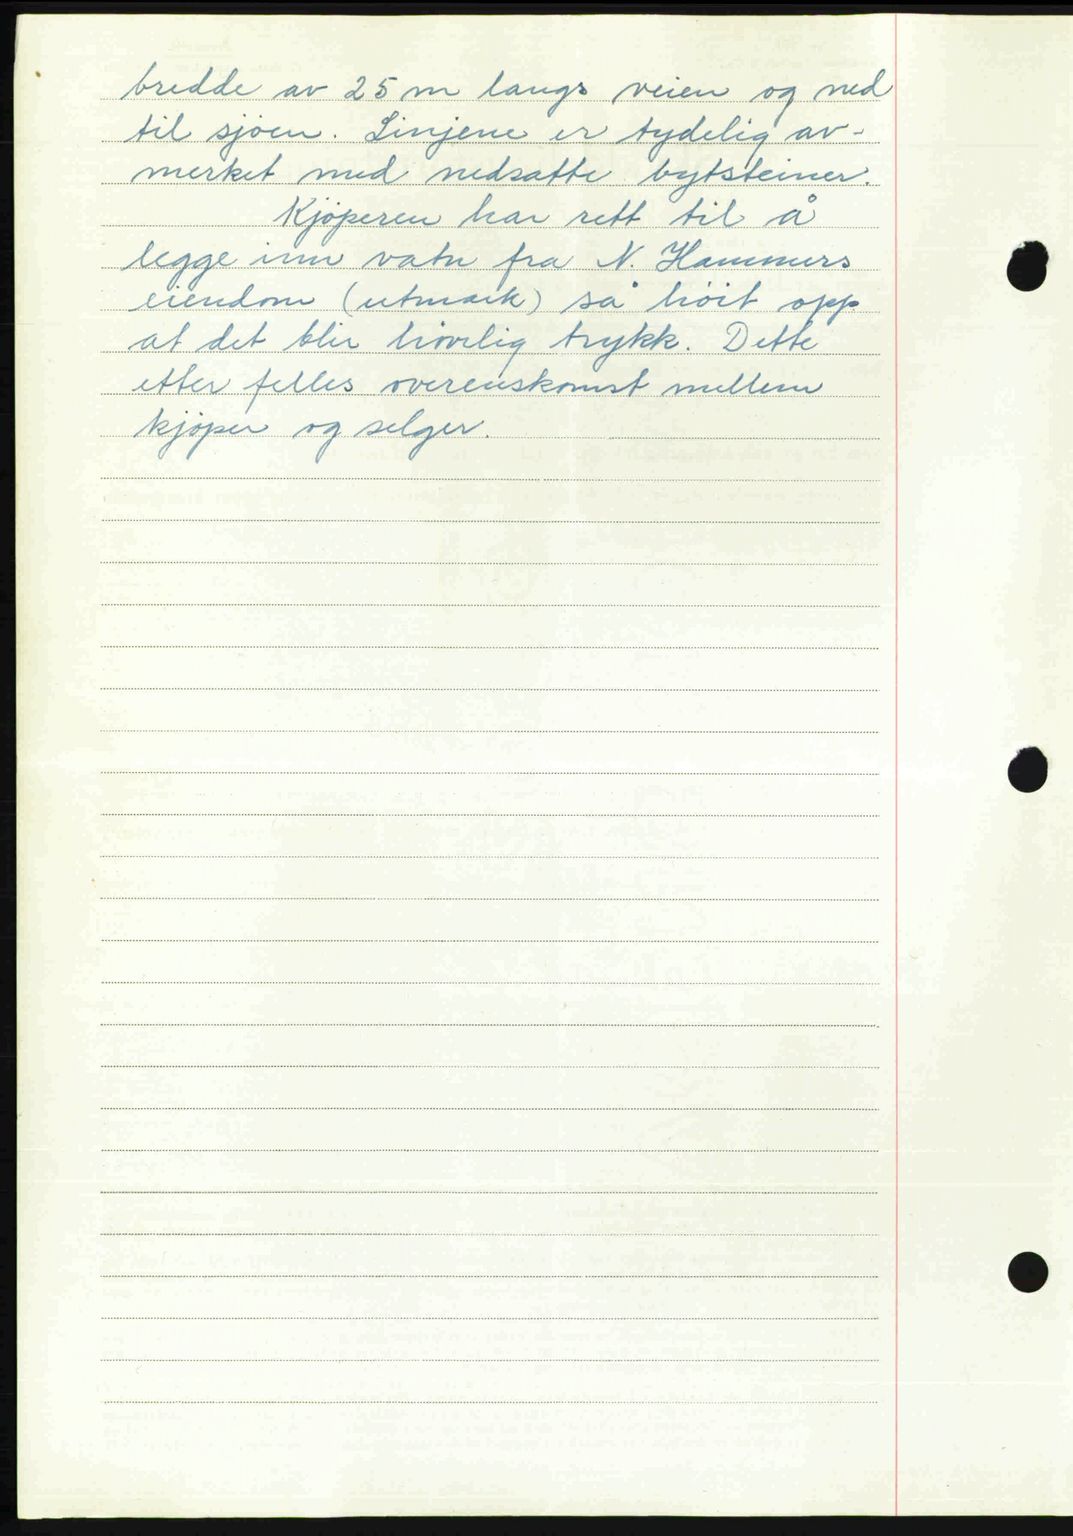 bredde av 25 m langs veien og ned
til sjøen. Linjene er tydelig av-
merket med nedsatte bytsteiner.
Kjøperen har rett til å
legge inn vatn fra N. Hammers
eiendom (utmark) så høit opp
at det blir høvelig trykk. Dette
etter felles overenskomst mellem
kjøper og selger.